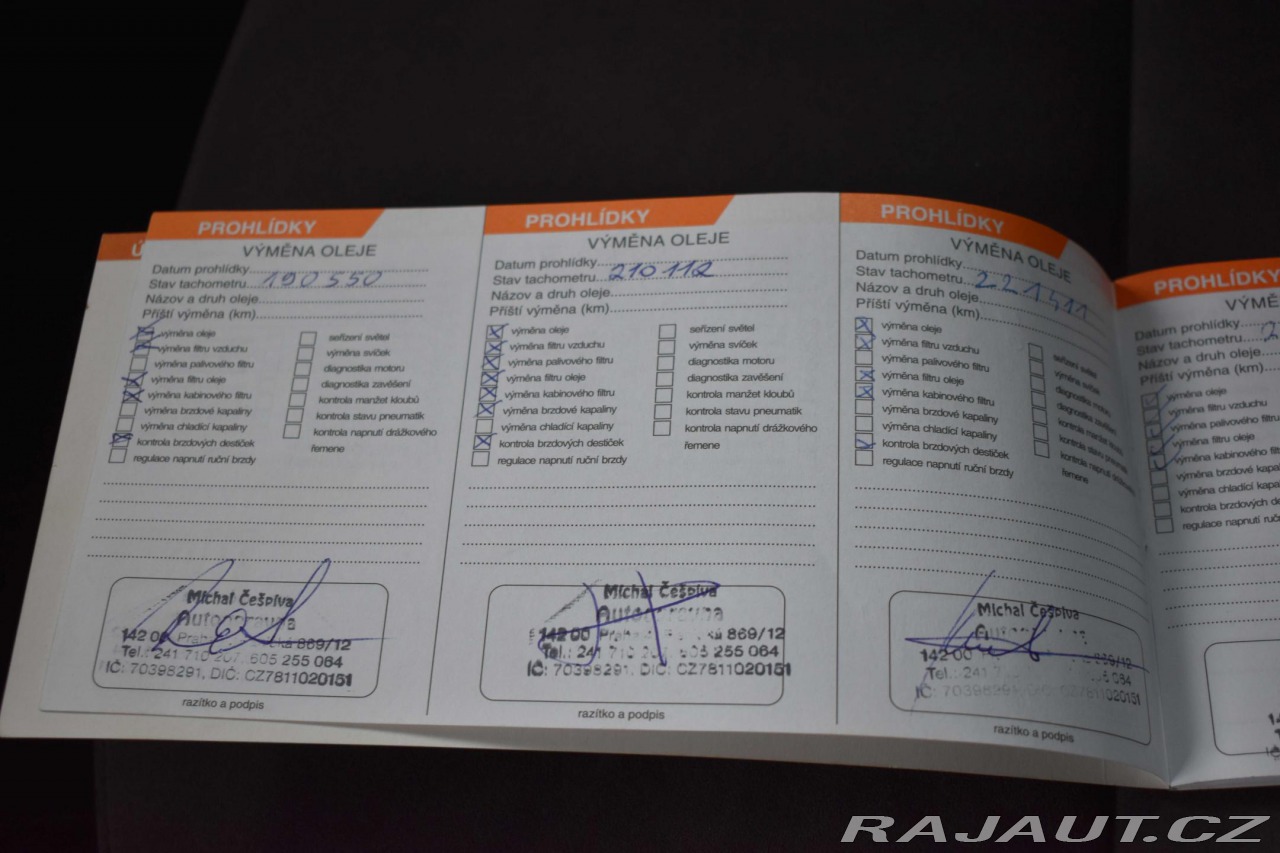 PROHLÍDKY
VÝMĚNA OLEJE
Datum prohlídky
Stav tachometru 190 550
Názov a druh oleje
Příští výměna (km)
výměna oleje
výměna filtru vzduchu
výměna palivového filtru
výměna filtru oleje
výměna kabinového filtru
výměna brzdové kapaliny
výměna chladící kapaliny
kontrola brzdových destiček
regulace napnutí ruční brzdy
seřízení světel
výměna svíček
diagnostika motoru
diagnostika zavěšení
kontrola manžet kloubů
kontrola stavu pneumatik
kontrola napnutí drážkového
řemene
Michal Češpiva
Autoopravna
142 00 869/12
Tel.: 241 710 207, 605 255 064
IČ: 70398291, DIČ: CZ7811020151
razítko a podpis
PROHLÍDKY
VÝMĚNA OLEJE
Datum prohlídky
Stav tachometru 210 112
Názov a druh oleje
Příští výměna (km)
výměna oleje
výměna filtru vzduchu
výměna palivového filtru
výměna filtru oleje
výměna kabinového filtru
výměna brzdové kapaliny
výměna chladící kapaliny
kontrola brzdových destiček
regulace napnutí ruční brzdy
seřízení světel
výměna svíček
diagnostika motoru
diagnostika zavěšení
kontrola manžet kloubů
kontrola stavu pneumatik
kontrola napnutí drážkového
řemene
Michal Češpiva
Autoopravna
142 00 869/12
Tel.: 241 710 605 255 064
IČ: 70398291, DIČ: CZ7811020151
razítko a podpis
PROHLÍDKY
VÝMĚNA OLEJE
Datum prohlídky
Stav tachometru
Názov a druh oleje
Příští výměna (km)
výměna oleje
výměna filtru vzduchu
výměna palivového filtru
výměna filtru oleje
výměna kabinového filtru
výměna brzdové kapaliny
výměna chladící kapaliny
kontrola brzdových destiček
regulace napnutí ruční brzdy
seřízení světel
výměna svíček
diagnostika
diagnostika
kontrola
kontrola stavu
kontrola napnutí
řemene
Michal Češpiva
142 00 869/12
Tel.: 241
IČ: 70398291, DIČ: CZ7811020151
razítko a podpis
PROHLÍDKY
Datum prohlídky
Stav tachometru
Názov a druh oleje
Příští výměna (km)
výměna oleje
výměna filtru vzduchu
výměna filtru oleje
výměna kabinového
výměna brzdové
výměna chladící
kontrola brzdových
regulace napnutí
RAJAUT.CZ